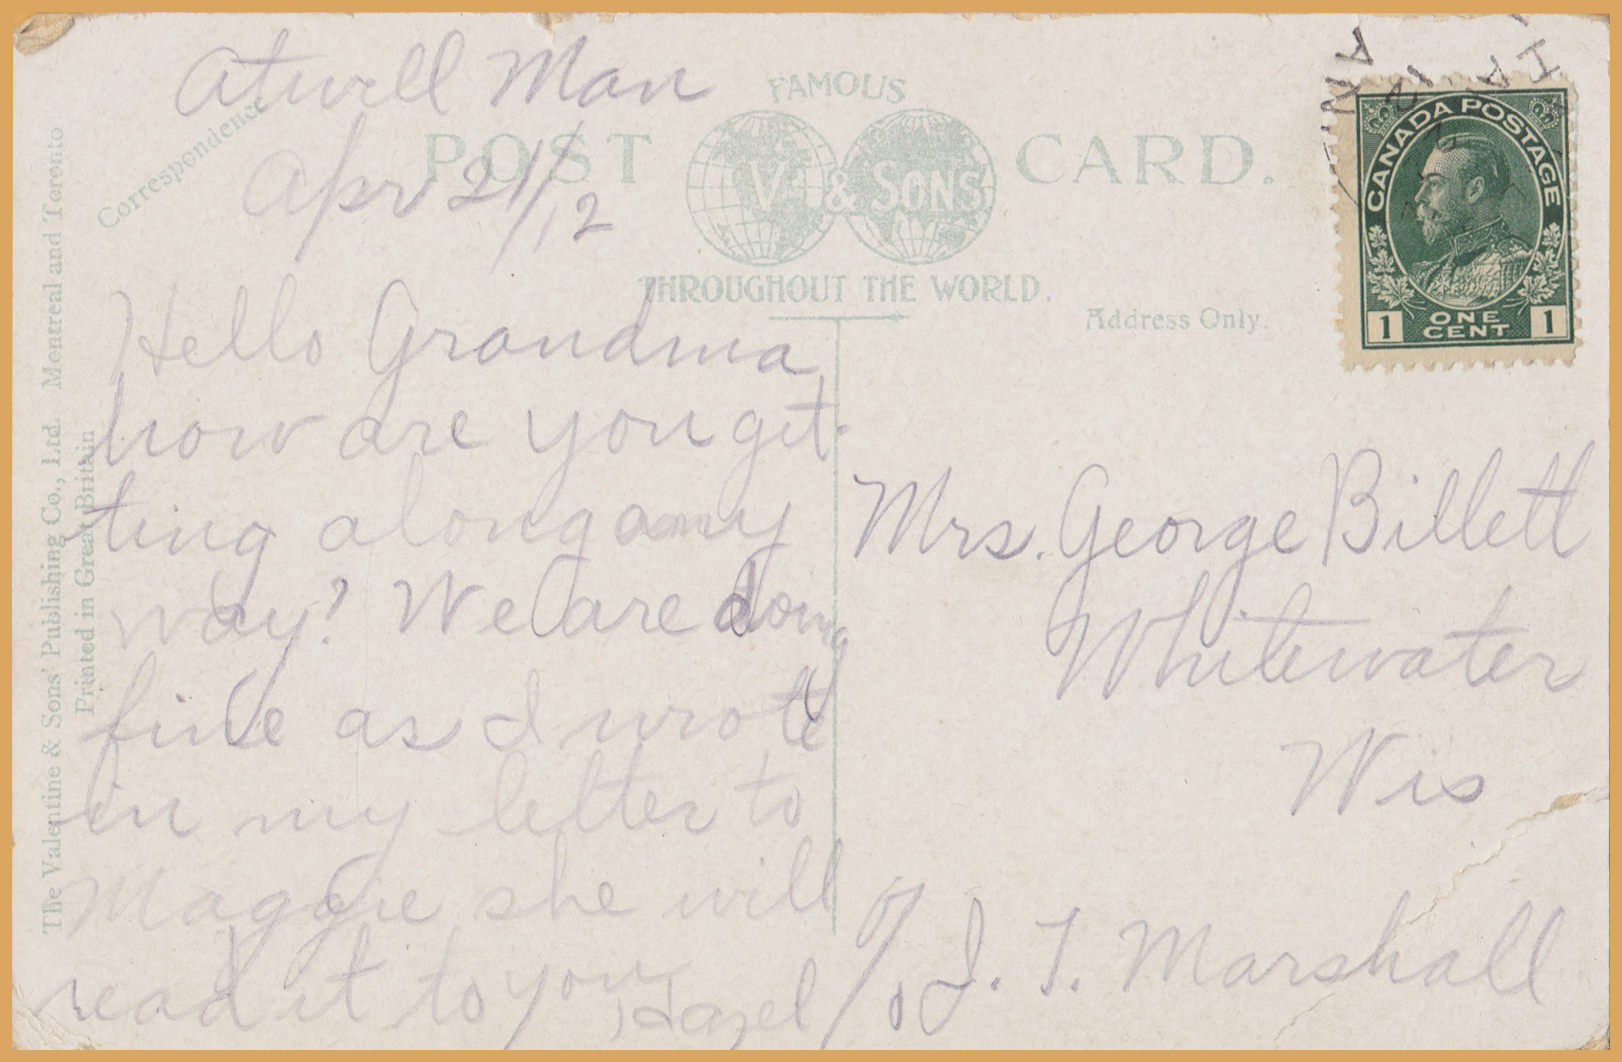 Atwell Man
Apr 21/12
Correspondence
FAMOUS
POST CARD.
V. & SONS
THROUGHOUT THE WORLD.
Address Only.
CANADA POSTAGE
1 ONE CENT 1
The Valentine & Sons' Publishing Co., Ltd. Montreal and Toronto
Printed in Great Britain
Hello Grandma
how are you get-
ting along anny
way? We are doing
fine as I wrote
in my letter to
Maggie she will
read it to you
Hazel
Mrs. George Billett
Whitewater
Wis
c/o J. T. Marshall